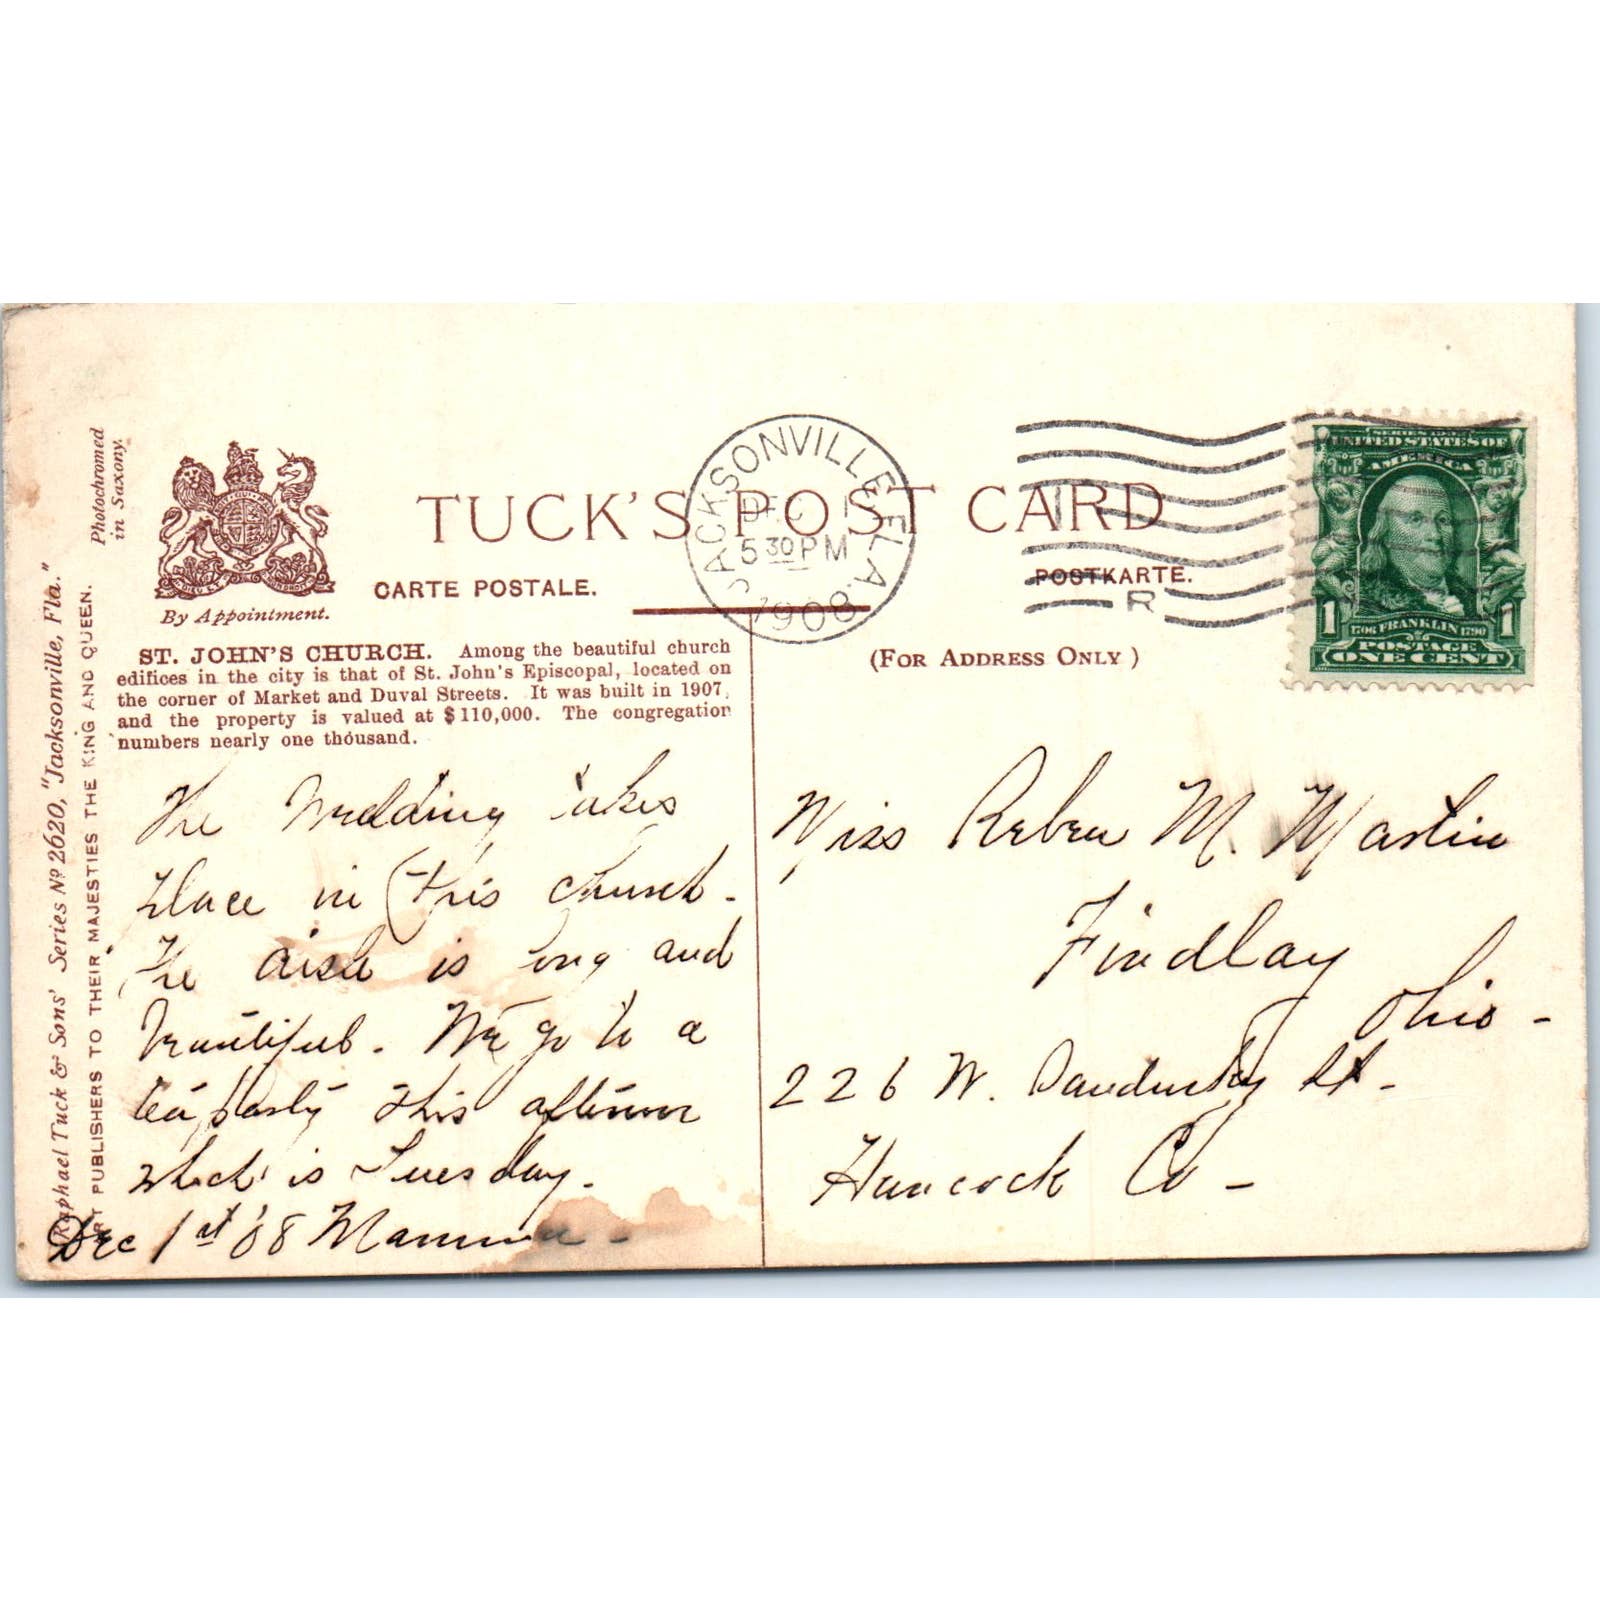 Photochromed
in Saxony.
TUCK'S POST CARD
CARTE POSTALE.
POSTKARTE.
By Appointment.
(FOR ADDRESS ONLY)
JACKSONVILLE, FLA.
5 30 PM
1908
R
SERIES 1902
UNITED STATES OF
AMERICA
1
1706 FRANKLIN 1790
1
POSTAGE
ONE CENT
Raphael Tuck & Sons' Series Nº 2620, "Jacksonville, Fla."
ART PUBLISHERS TO THEIR MAJESTIES THE KING AND QUEEN.
ST. JOHN'S CHURCH. Among the beautiful church
edifices in the city is that of St. John's Episcopal, located on
the corner of Market and Duval Streets. It was built in 1907,
and the property is valued at $110,000. The congregation
numbers nearly one thousand.
The Wedding takes
place in this church -
The aisle is long and
beautiful. We go to a
tea party this afternoon
which is Tuesday -
Dec 1st '08 Mamma -
Miss Rebeca M. Martin
Findlay
Ohio -
226 W. Sandusky St -
Hancock Co -